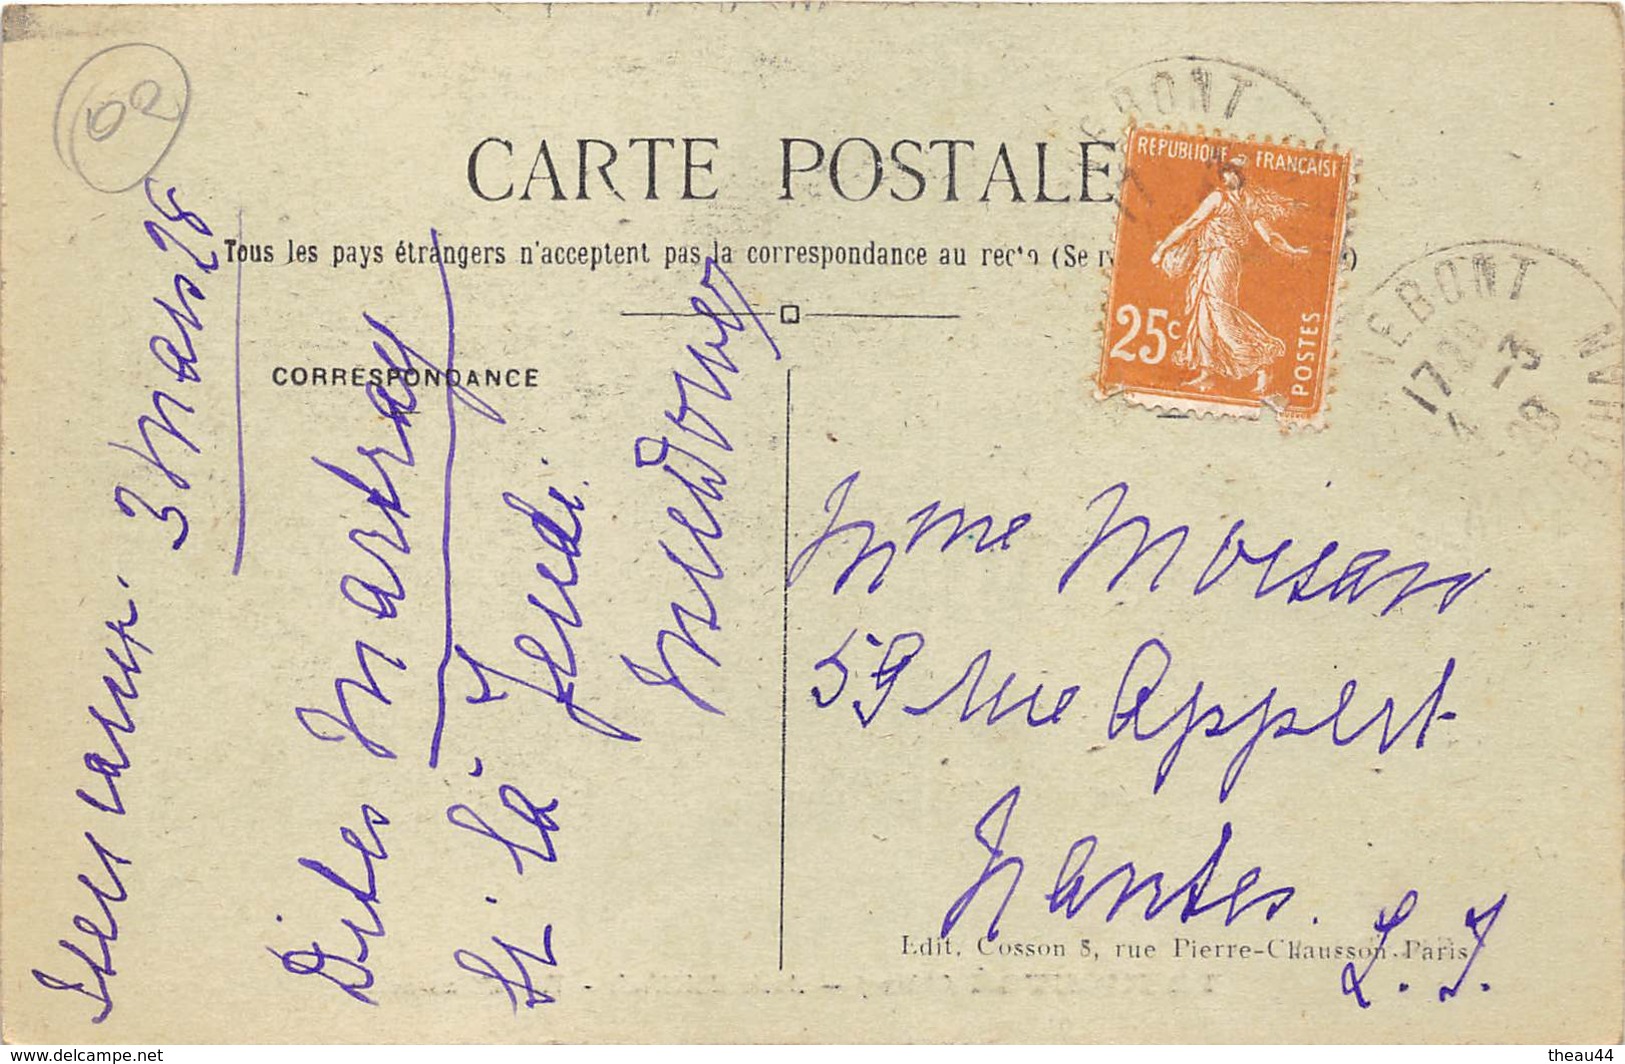 02
CARTE POSTALE
Tous les pays étrangers n'acceptent pas la correspondance au recto (Se
CORRESPONDANCE
REPUBLIQUE FRANÇAISE
25c
POSTES
EBONT
17
NEBONT
17 20
4 -3
28
3 Mars 28
Dites Martray
si là jeudi
Mme Moisan
59 rue Appert
Nantes.
L. I.
Edit. Cosson 8, rue Pierre-Chausson. Paris
www.delcampe.net
theau44